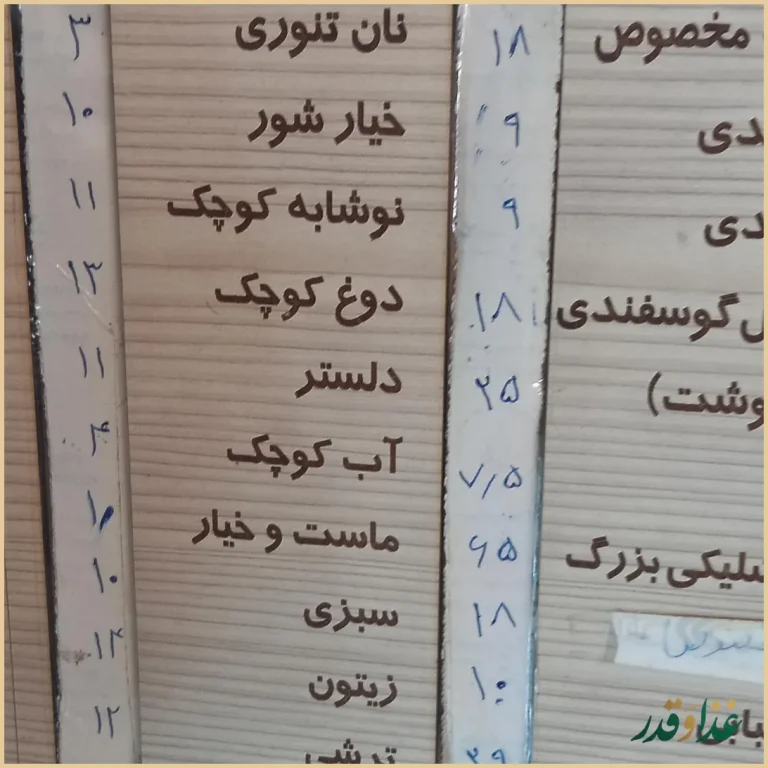 مخصوص ۱۸
دی ۹
دی ۹
گوسفندی ۱۸
وشت) ۲۵
۷/۵
سلیکی بزرگ ۶۵
۱۸
۱۰
نان تنوری ۳
خیار شور ۱۰
نوشابه کوچک ۱۱
دوغ کوچک ۱۳
دلستر ۱۱
آب کوچک ۴
ماست و خیار
سبزی ۱۰
زیتون ۱۴
ترشی ۱۲
غذا و قدر